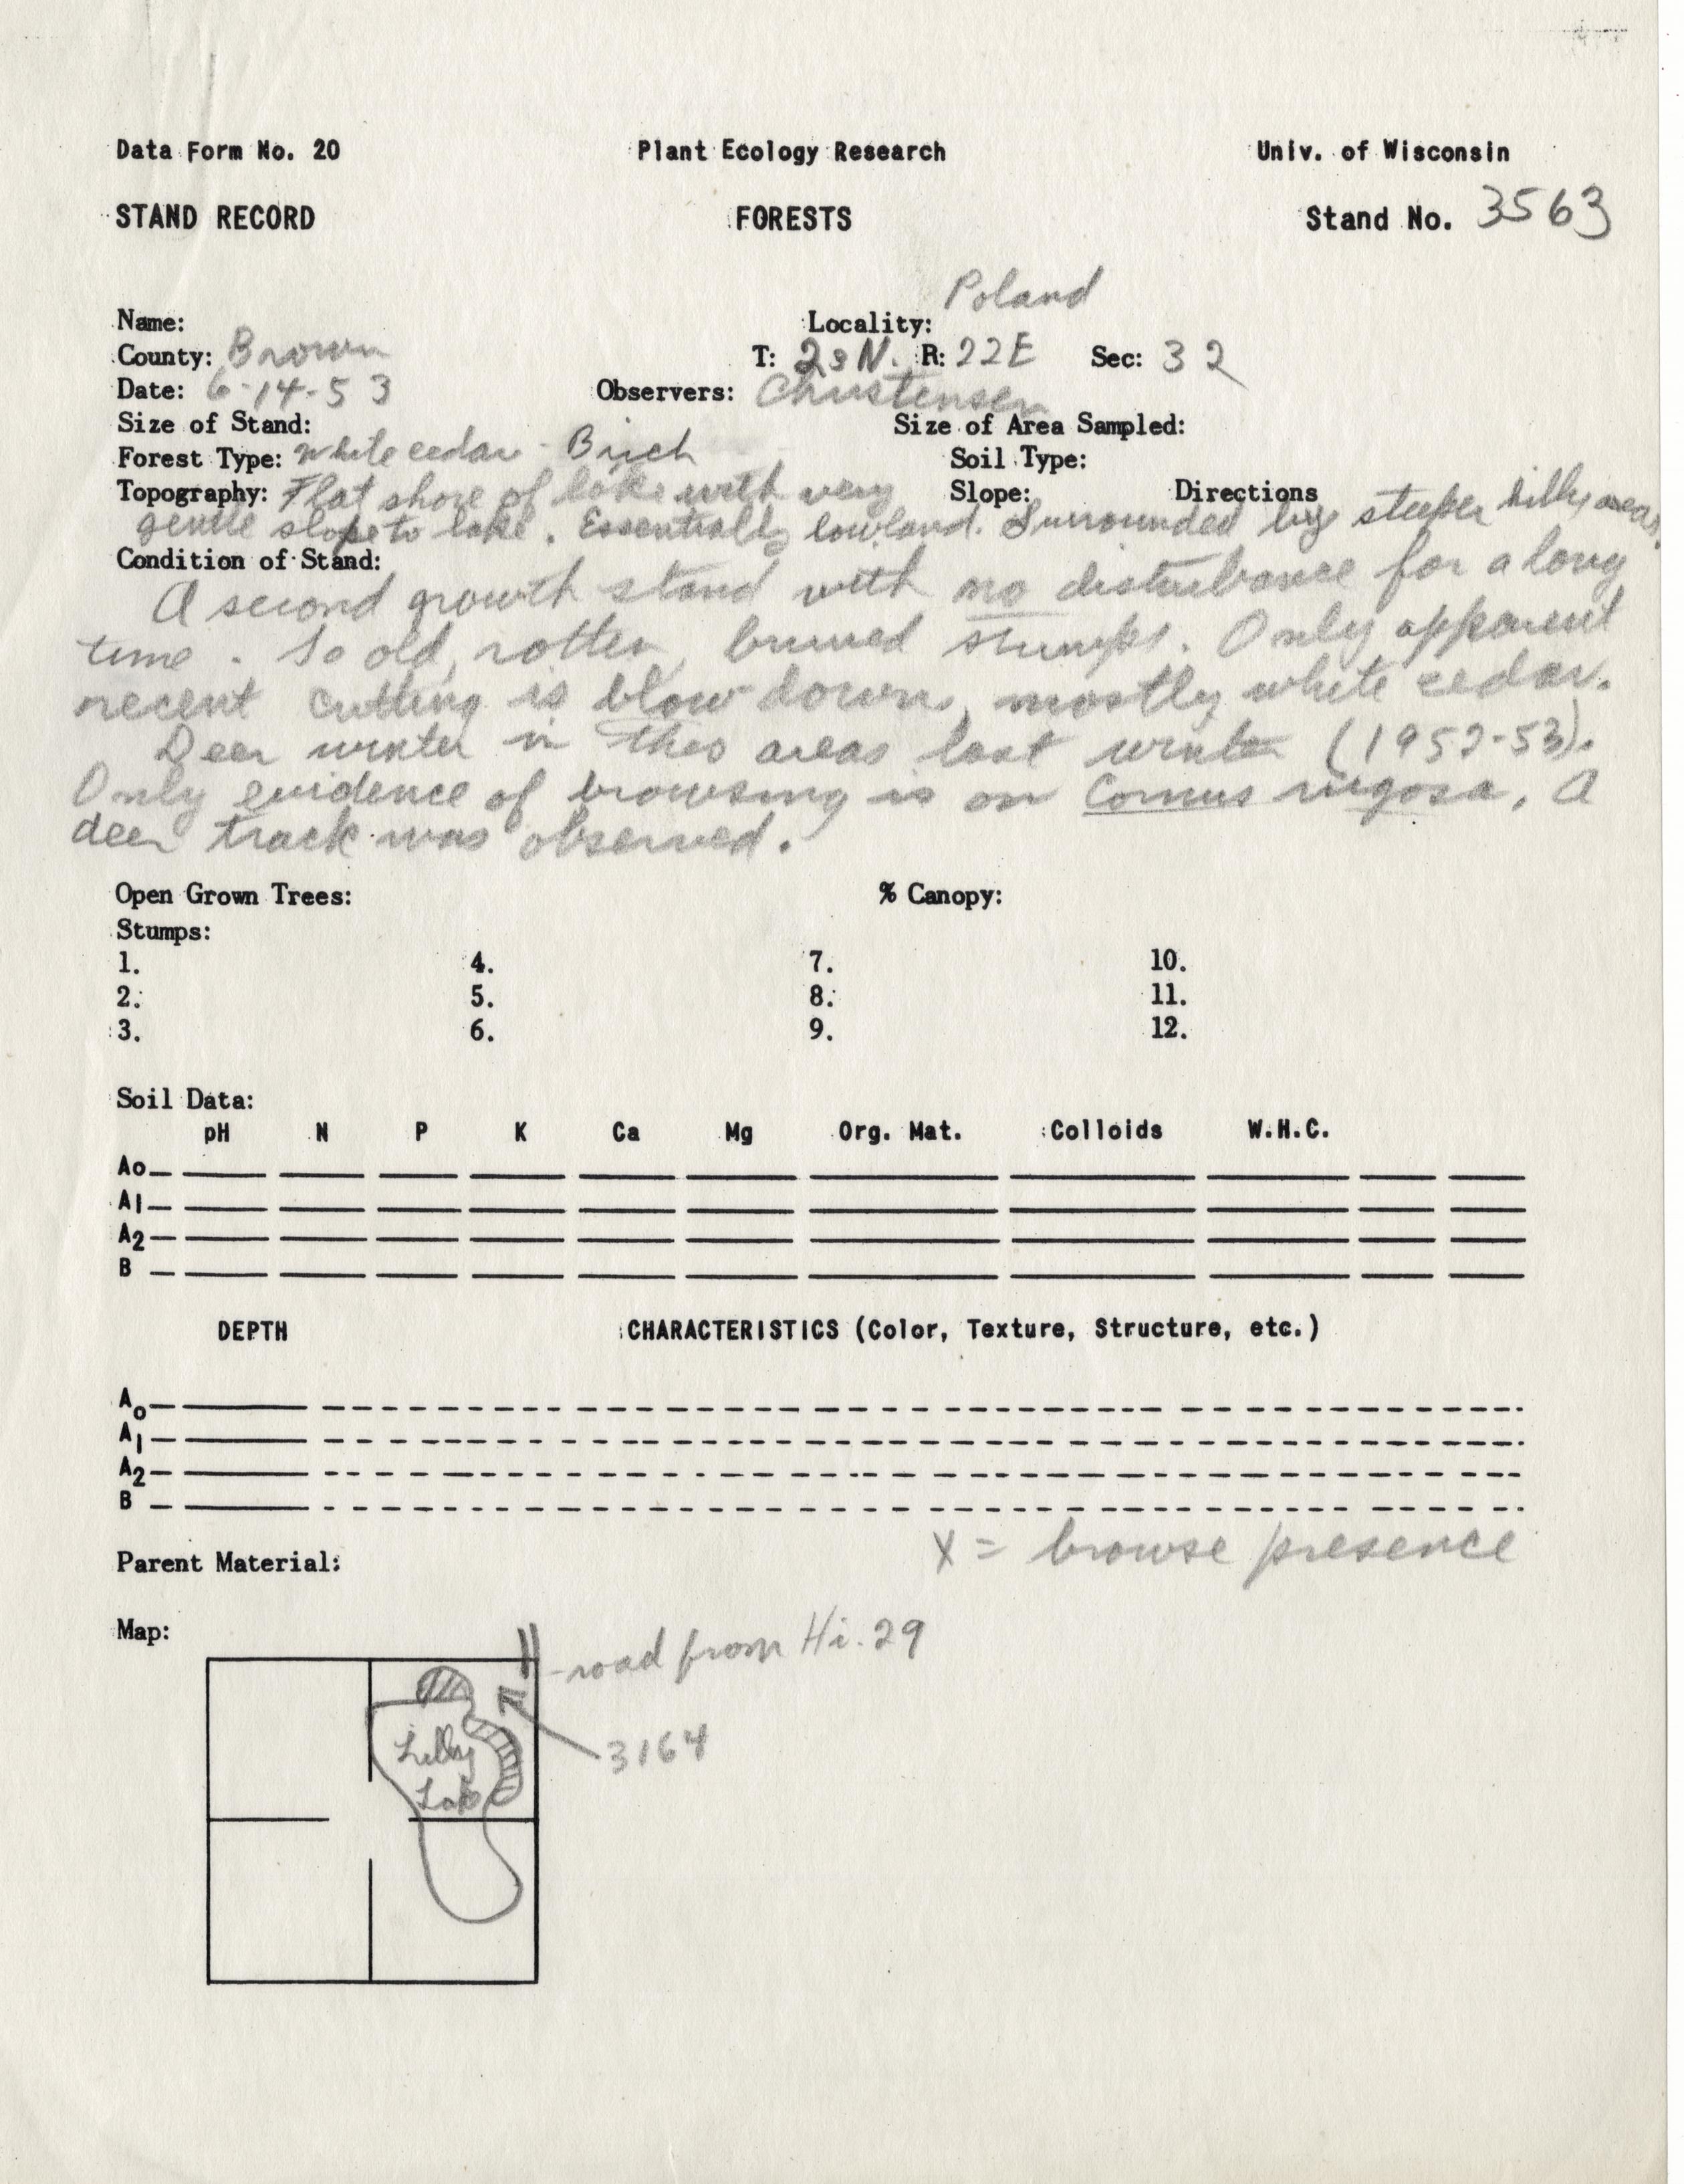 Data Form No. 20 Plant Ecology Research Univ. of Wisconsin
STAND RECORD FORESTS Stand No. 3563
Name: Locality: Poland
County: Brown T: 23N. R: 22E Sec: 32
Date: 6-14-53 Observers: Christensen
Size of Stand: Size of Area Sampled:
Forest Type: White cedar - Birch Soil Type:
Topography: Flat shore of lake with very Slope: Directions
gentle slope to lake. Essentially lowland. Surrounded by steeper hilly areas.
Condition of Stand:
A second growth stand with no disturbance for a long
time. So old, rotten, burned stumps. Only apparent
recent cutting is blow downs, mostly white cedar.
Deer winter in this areas last winter (1952-53).
Only evidence of browsing is on Cornus rugosa, A
deer track was observed.
Open Grown Trees: % Canopy:
Stumps:
1. 4. 7. 10.
2. 5. 8. 11.
3. 6. 9. 12.
Soil Data:
pH N P K Ca Mg Org. Mat. Colloids W.H.C.
Ao
A1
A2
B
DEPTH CHARACTERISTICS (Color, Texture, Structure, etc.)
Ao
A1
A2
B
X = browse presence
Parent Material:
Map:
road from Hi. 29
3164
Lilly
Lake